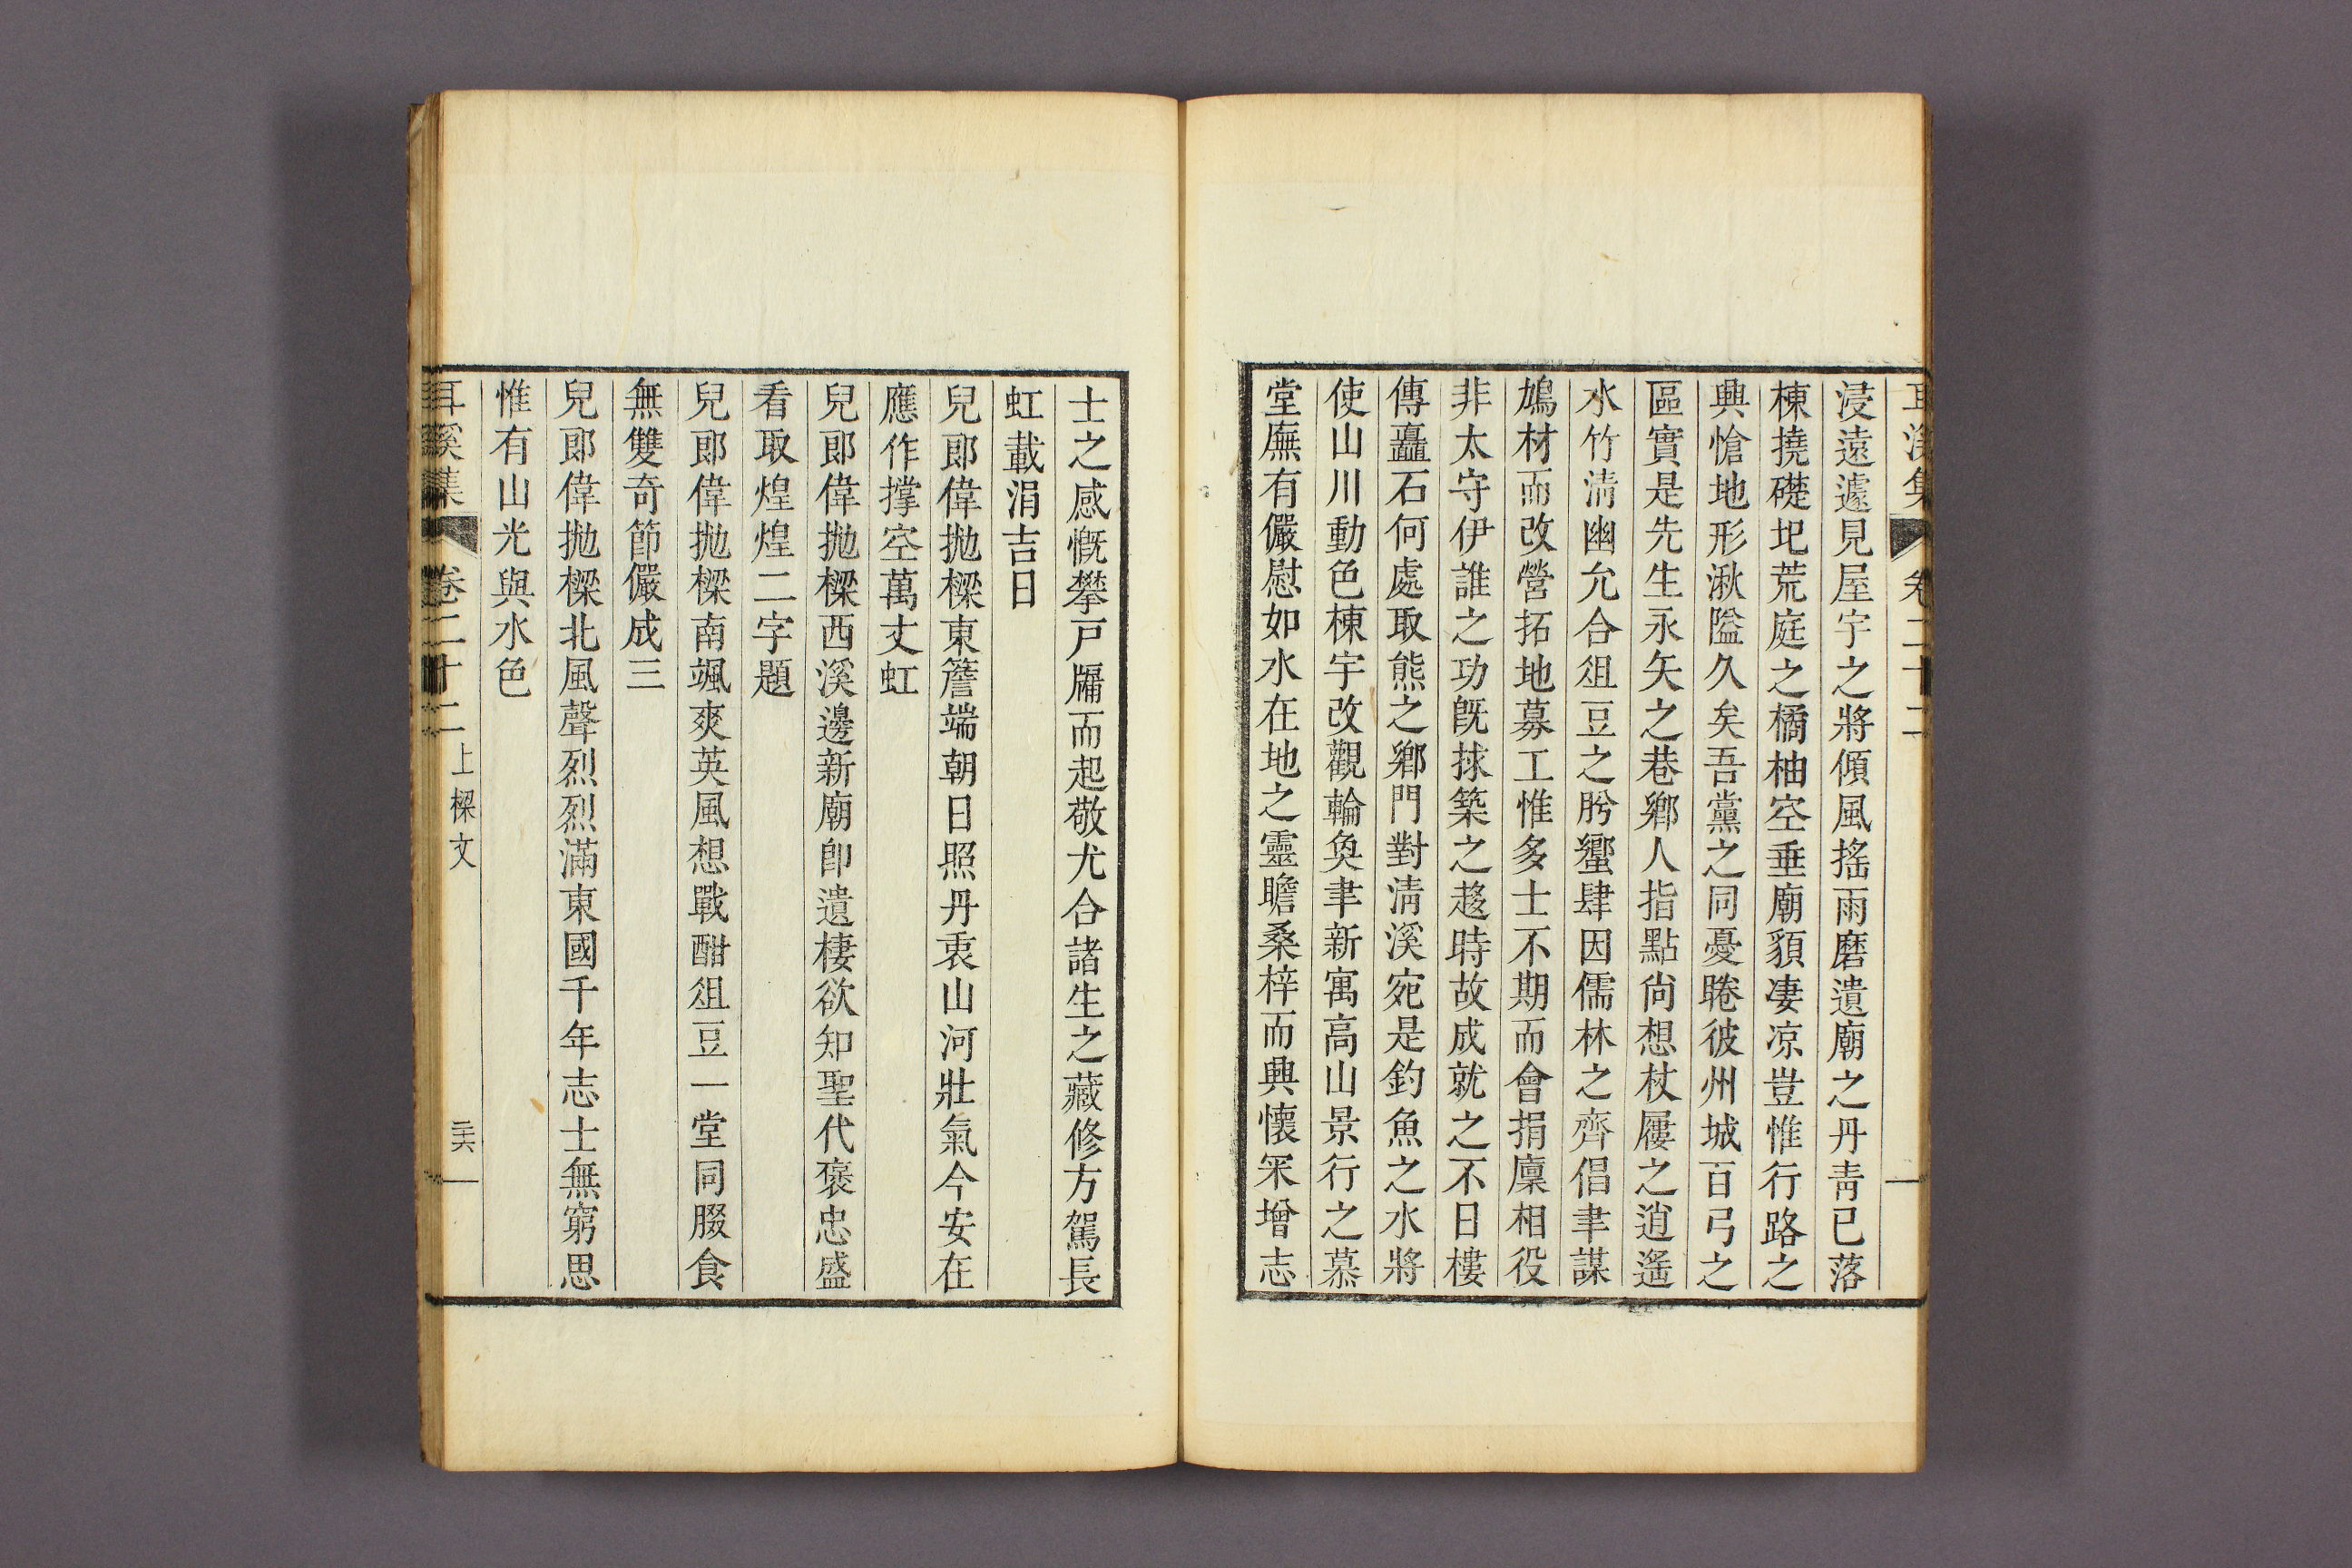 耳溪集 卷二十二
浸遠遽見屋宇之將傾風搖雨磨遺廟之丹靑已落
棟撓礎圯荒庭之橘柚空垂廟貌凄凉豈惟行路之
興愴地形湫隘久矣吾黨之同憂睠彼州城百弓之
區實是先生永矢之巷鄕人指點尙想杖屨之逍遙
水竹淸幽允合俎豆之肹蠁肆因儒林之齊倡聿謀
鳩材而改營拓地募工惟多士不期而會捐廩相役
非太守伊誰之功旣捄築之趍時故成就之不日樓
傳矗石何處取熊之鄕門對淸溪宛是釣魚之水將
使山川動色棟宇改觀輪奐聿新寓高山景行之慕
堂廡有儼慰如水在地之靈瞻桑梓而興懷罙增志
士之感慨攀戶牖而起敬尤合諸生之藏修方駕長
虹載涓吉日
兒郞偉抛樑東簷端朝日照丹衷山河壯氣今安在
應作撑空萬丈虹
兒郞偉抛樑西溪邊新廟卽遺棲欲知聖代褒忠盛
看取煌煌二字題
兒郞偉抛樑南颯爽英風想戰酣俎豆一堂同腏食
無雙奇節儼成三
兒郞偉抛樑北風聲烈烈滿東國千年志士無窮思
惟有山光與水色
耳溪集 卷二十二 上樑文 二十六